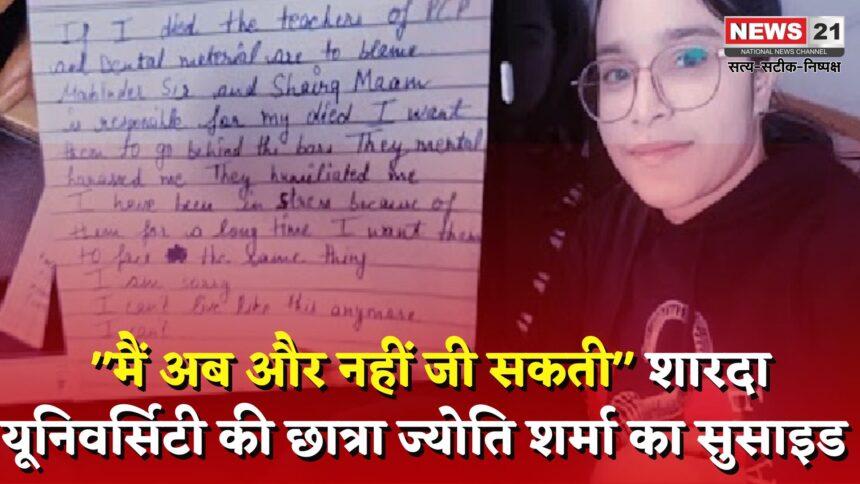 If I died the teachers of PCP
and Dental meterial are to blame
Mahinder Sir and Shairy Maam
is responsible for my died I want
them to go behind the bars They mental
harassed me They humiliated me
I have been in stress because of
them for a long time I want them
to face the same thing
I am sorry
I can't live like this anymore
I can't
NEWS 21
NATIONAL NEWS CHANNEL
सत्य-सटीक-निष्पक्ष
"मैं अब और नहीं जी सकती" शारदा
यूनिवर्सिटी की छात्रा ज्योति शर्मा का सुसाइड